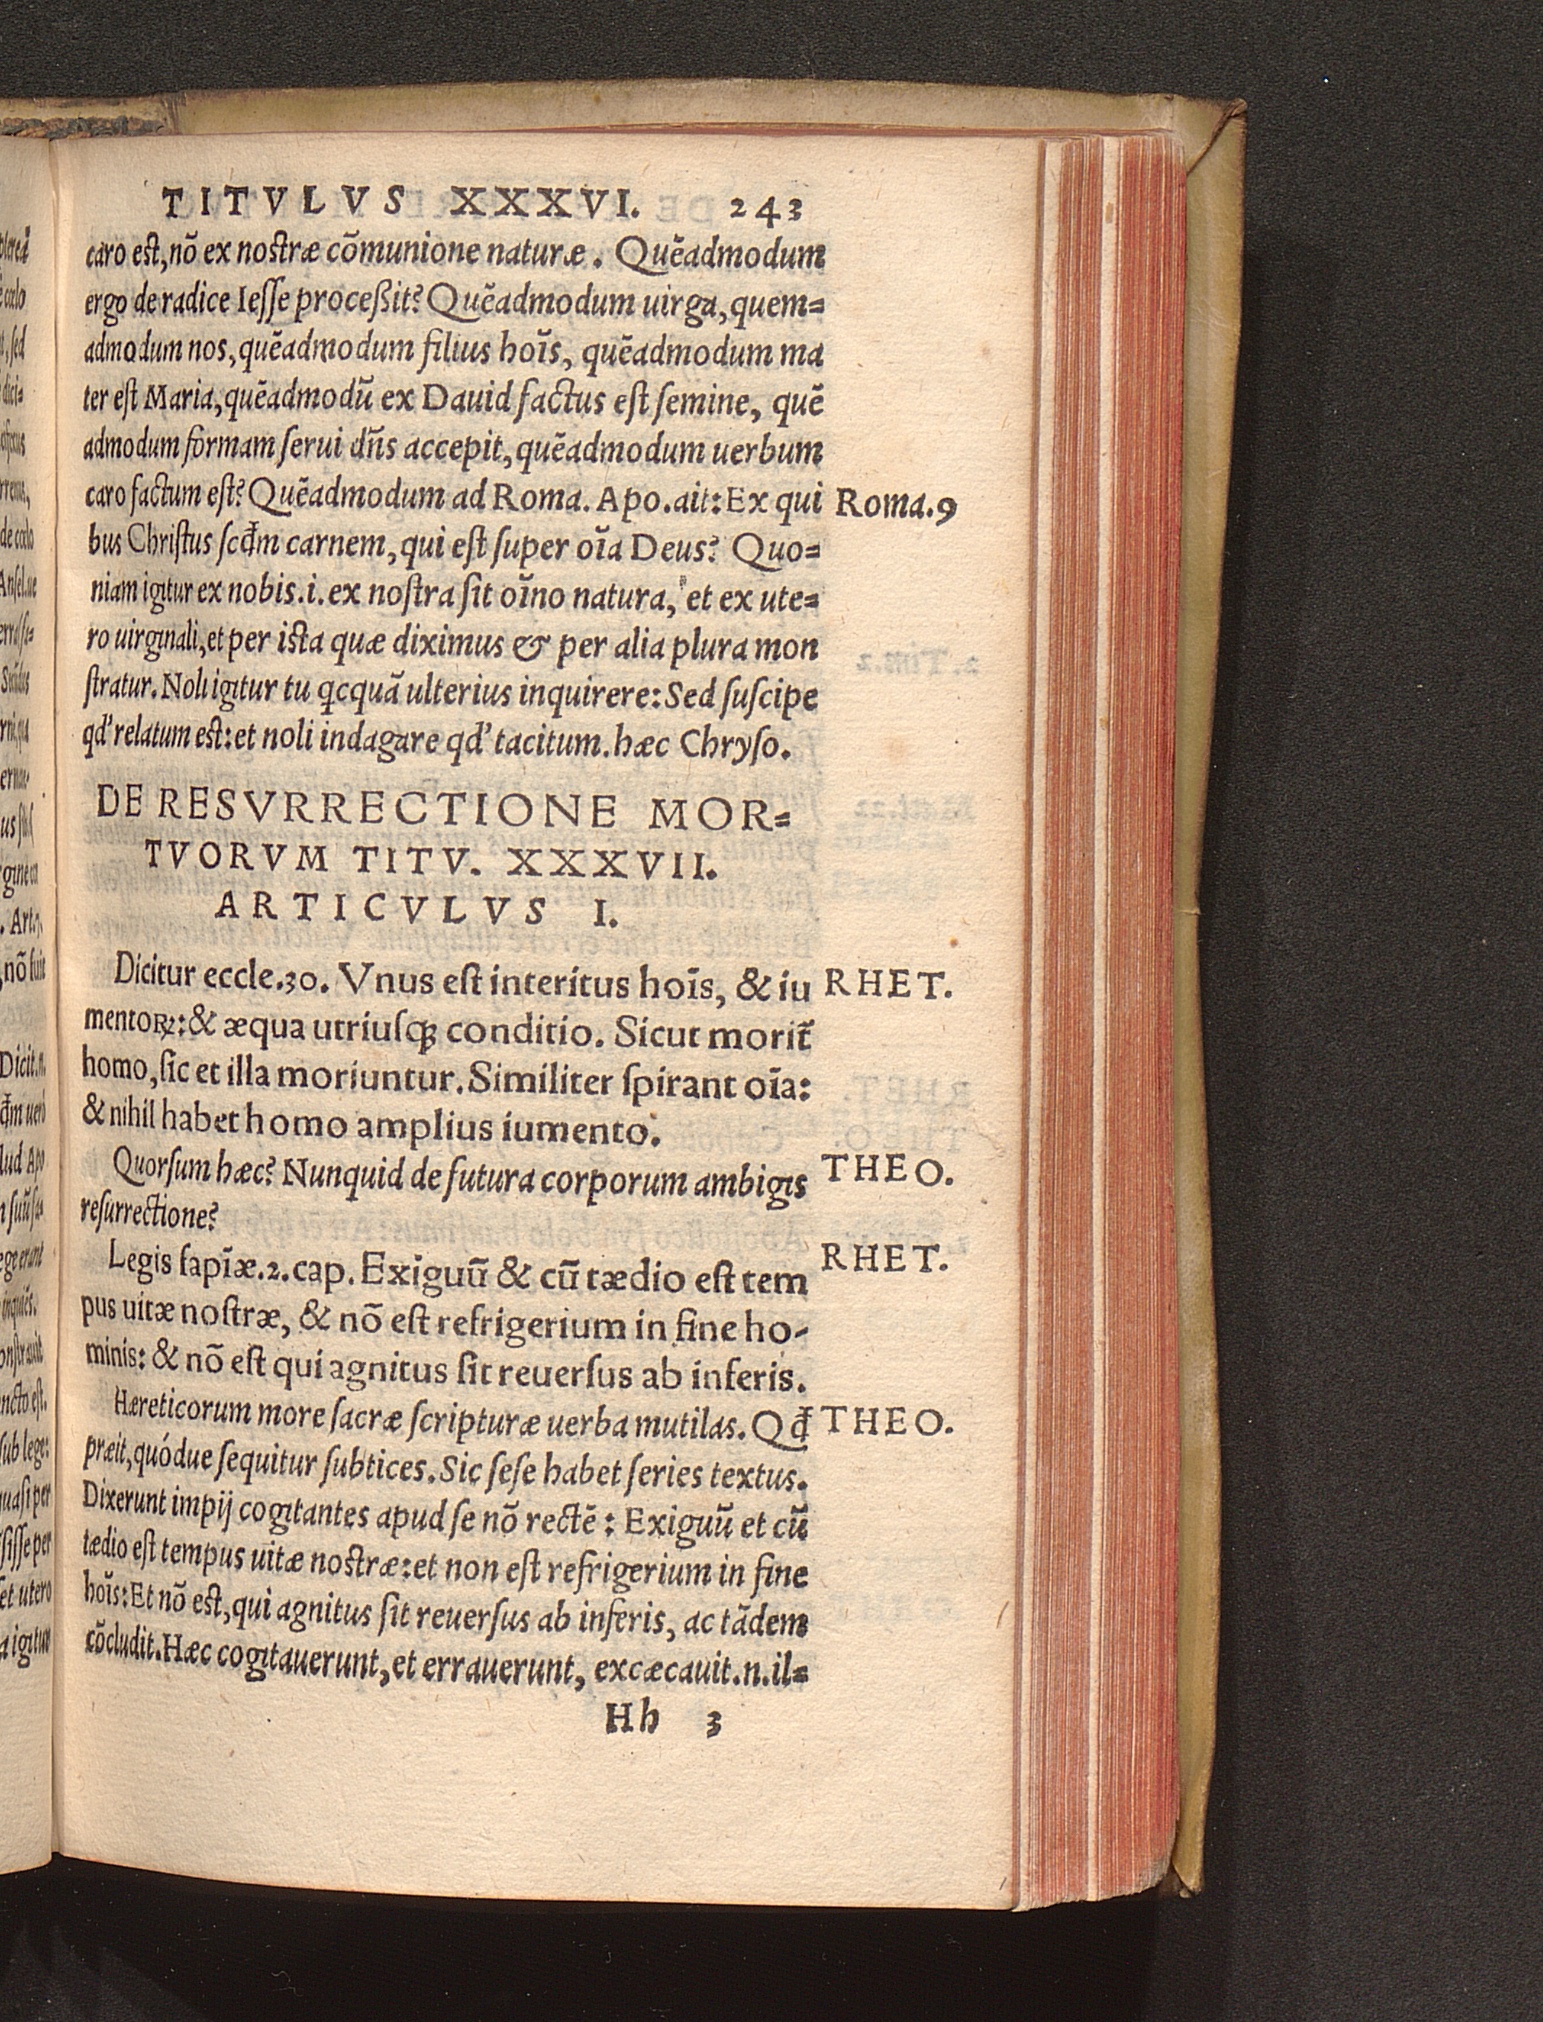 TITVLVS XXXVI. 243
caro est, nõ ex nostræ cõmunione naturæ. Quẽadmodum
ergo de radice Iesse proceßit? Quẽadmodum uirga, quem=
admodum nos, quẽadmodum filius hoĩs, quẽadmodum ma
ter est Maria, quẽadmodũ ex Dauid factus est semine, quẽ
admodum formam serui dñs accepit, quẽadmodum uerbum
caro factum est? Quẽadmodum ad Roma. Apo. ait: Ex qui Roma.9
bus Christus scd̃m carnem, qui est super oĩa Deus? Quo=
niam igitur ex nobis .i. ex nostra sit oĩno natura, et ex ute=
ro uirginali, et per ista quæ diximus & per alia plura mon
stratur. Noli igitur tu qcquã ulterius inquirere: Sed suscipe
qd' relatum est: et noli indagare qd' tacitum. hæc Chryso.
DE RESVRRECTIONE MOR=
TVORVM TITV. XXXVII.
ARTICVLVS I.
Dicitur eccle.30. Vnus est interitus hoĩs, & iu RHET.
mentoꝝ: & æqua utriusqꝫ conditio. Sicut morit̃
homo, sic et illa moriuntur. Similiter spirant oĩa:
& nihil habet homo amplius iumento.
Quorsum hæc? Nunquid de futura corporum ambigis THEO.
resurrectione?
Legis sapĩæ.2.cap. Exiguũ & cũ tædio est tem RHET.
pus uitæ nostræ, & nõ est refrigerium in fine ho-
minis: & nõ est qui agnitus sit reuersus ab inferis.
Hæreticorum more sacræ scripturæ uerba mutilas. Qd̃ THEO.
præit, quódue sequitur subtices. Sic sese habet series textus.
Dixerunt impij cogitantes apud se nõ rectẽ: Exiguũ et cũ
tædio est tempus uitæ nostræ: et non est refrigerium in fine
hoĩs: Et nõ est, qui agnitus sit reuersus ab inferis, ac tãdem
cõcludit. Hæc cogitauerunt, et errauerunt, excæcauit .n. il=
Hh 3